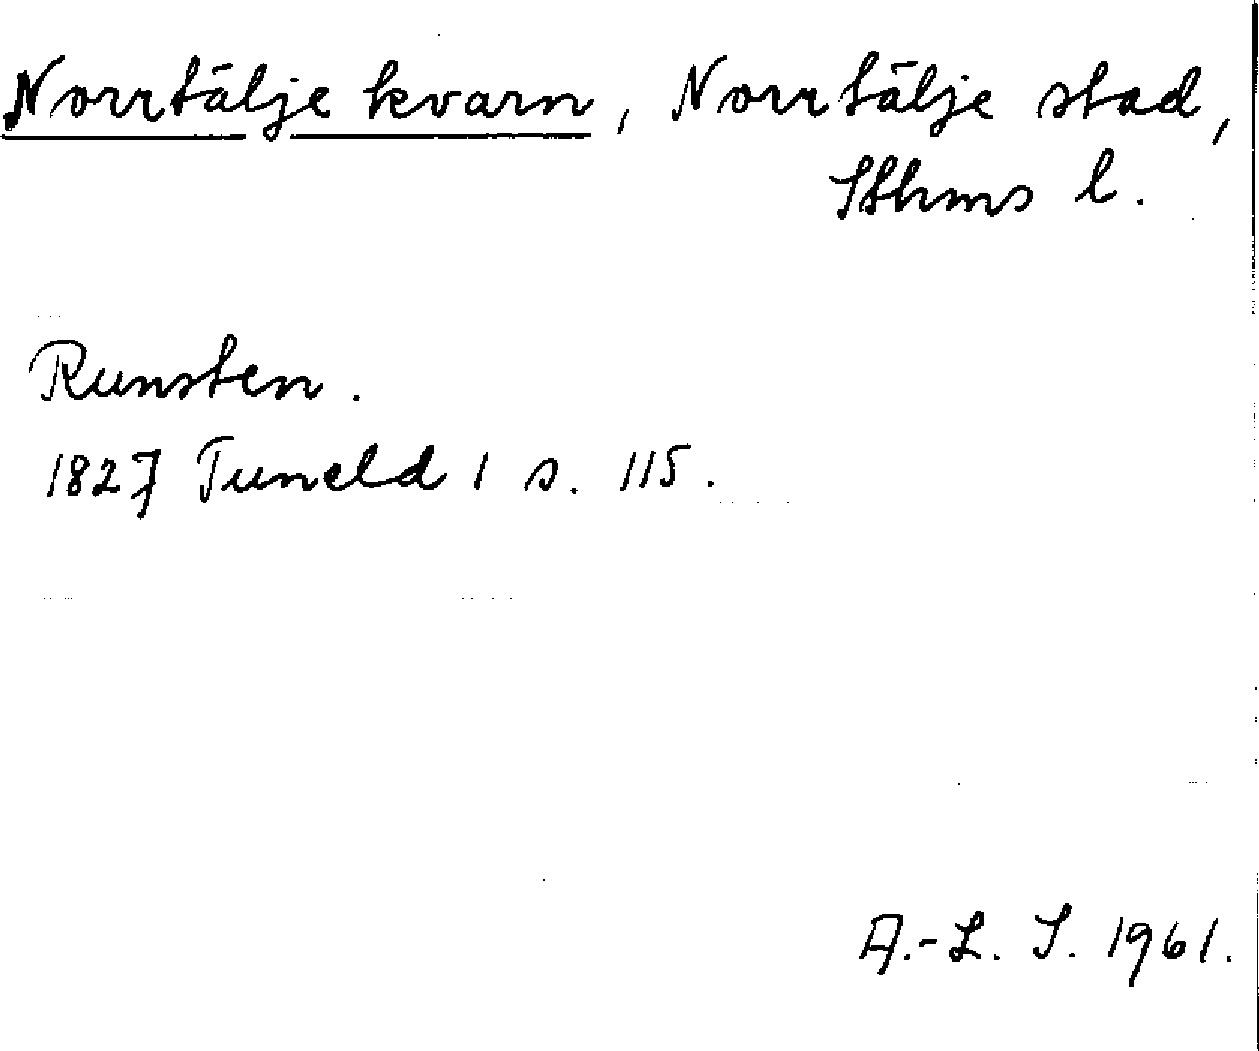 Norrtälje kvarn, Norrtälje stad,
Sthms l.
Runsten.
1827 Tuneld 1 s. 115.
A.-L. S. 1961.